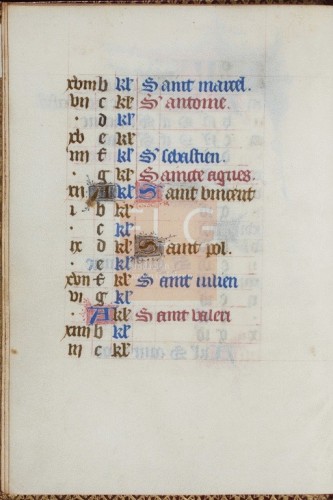 xviii b kł Saint marcel.
vii c kł S' antoine.
· d kł
xv e kł
iiii f kł S' sebastien.
· g kł Saincte agnes.
xii A kł Saint vincent
i b kł
· c kł
ix d kł Saint pol.
· e kł
xvii f kł Saint iulien
vi g kł
· A kł Saint valeri
xiiii b kł
iii c kł